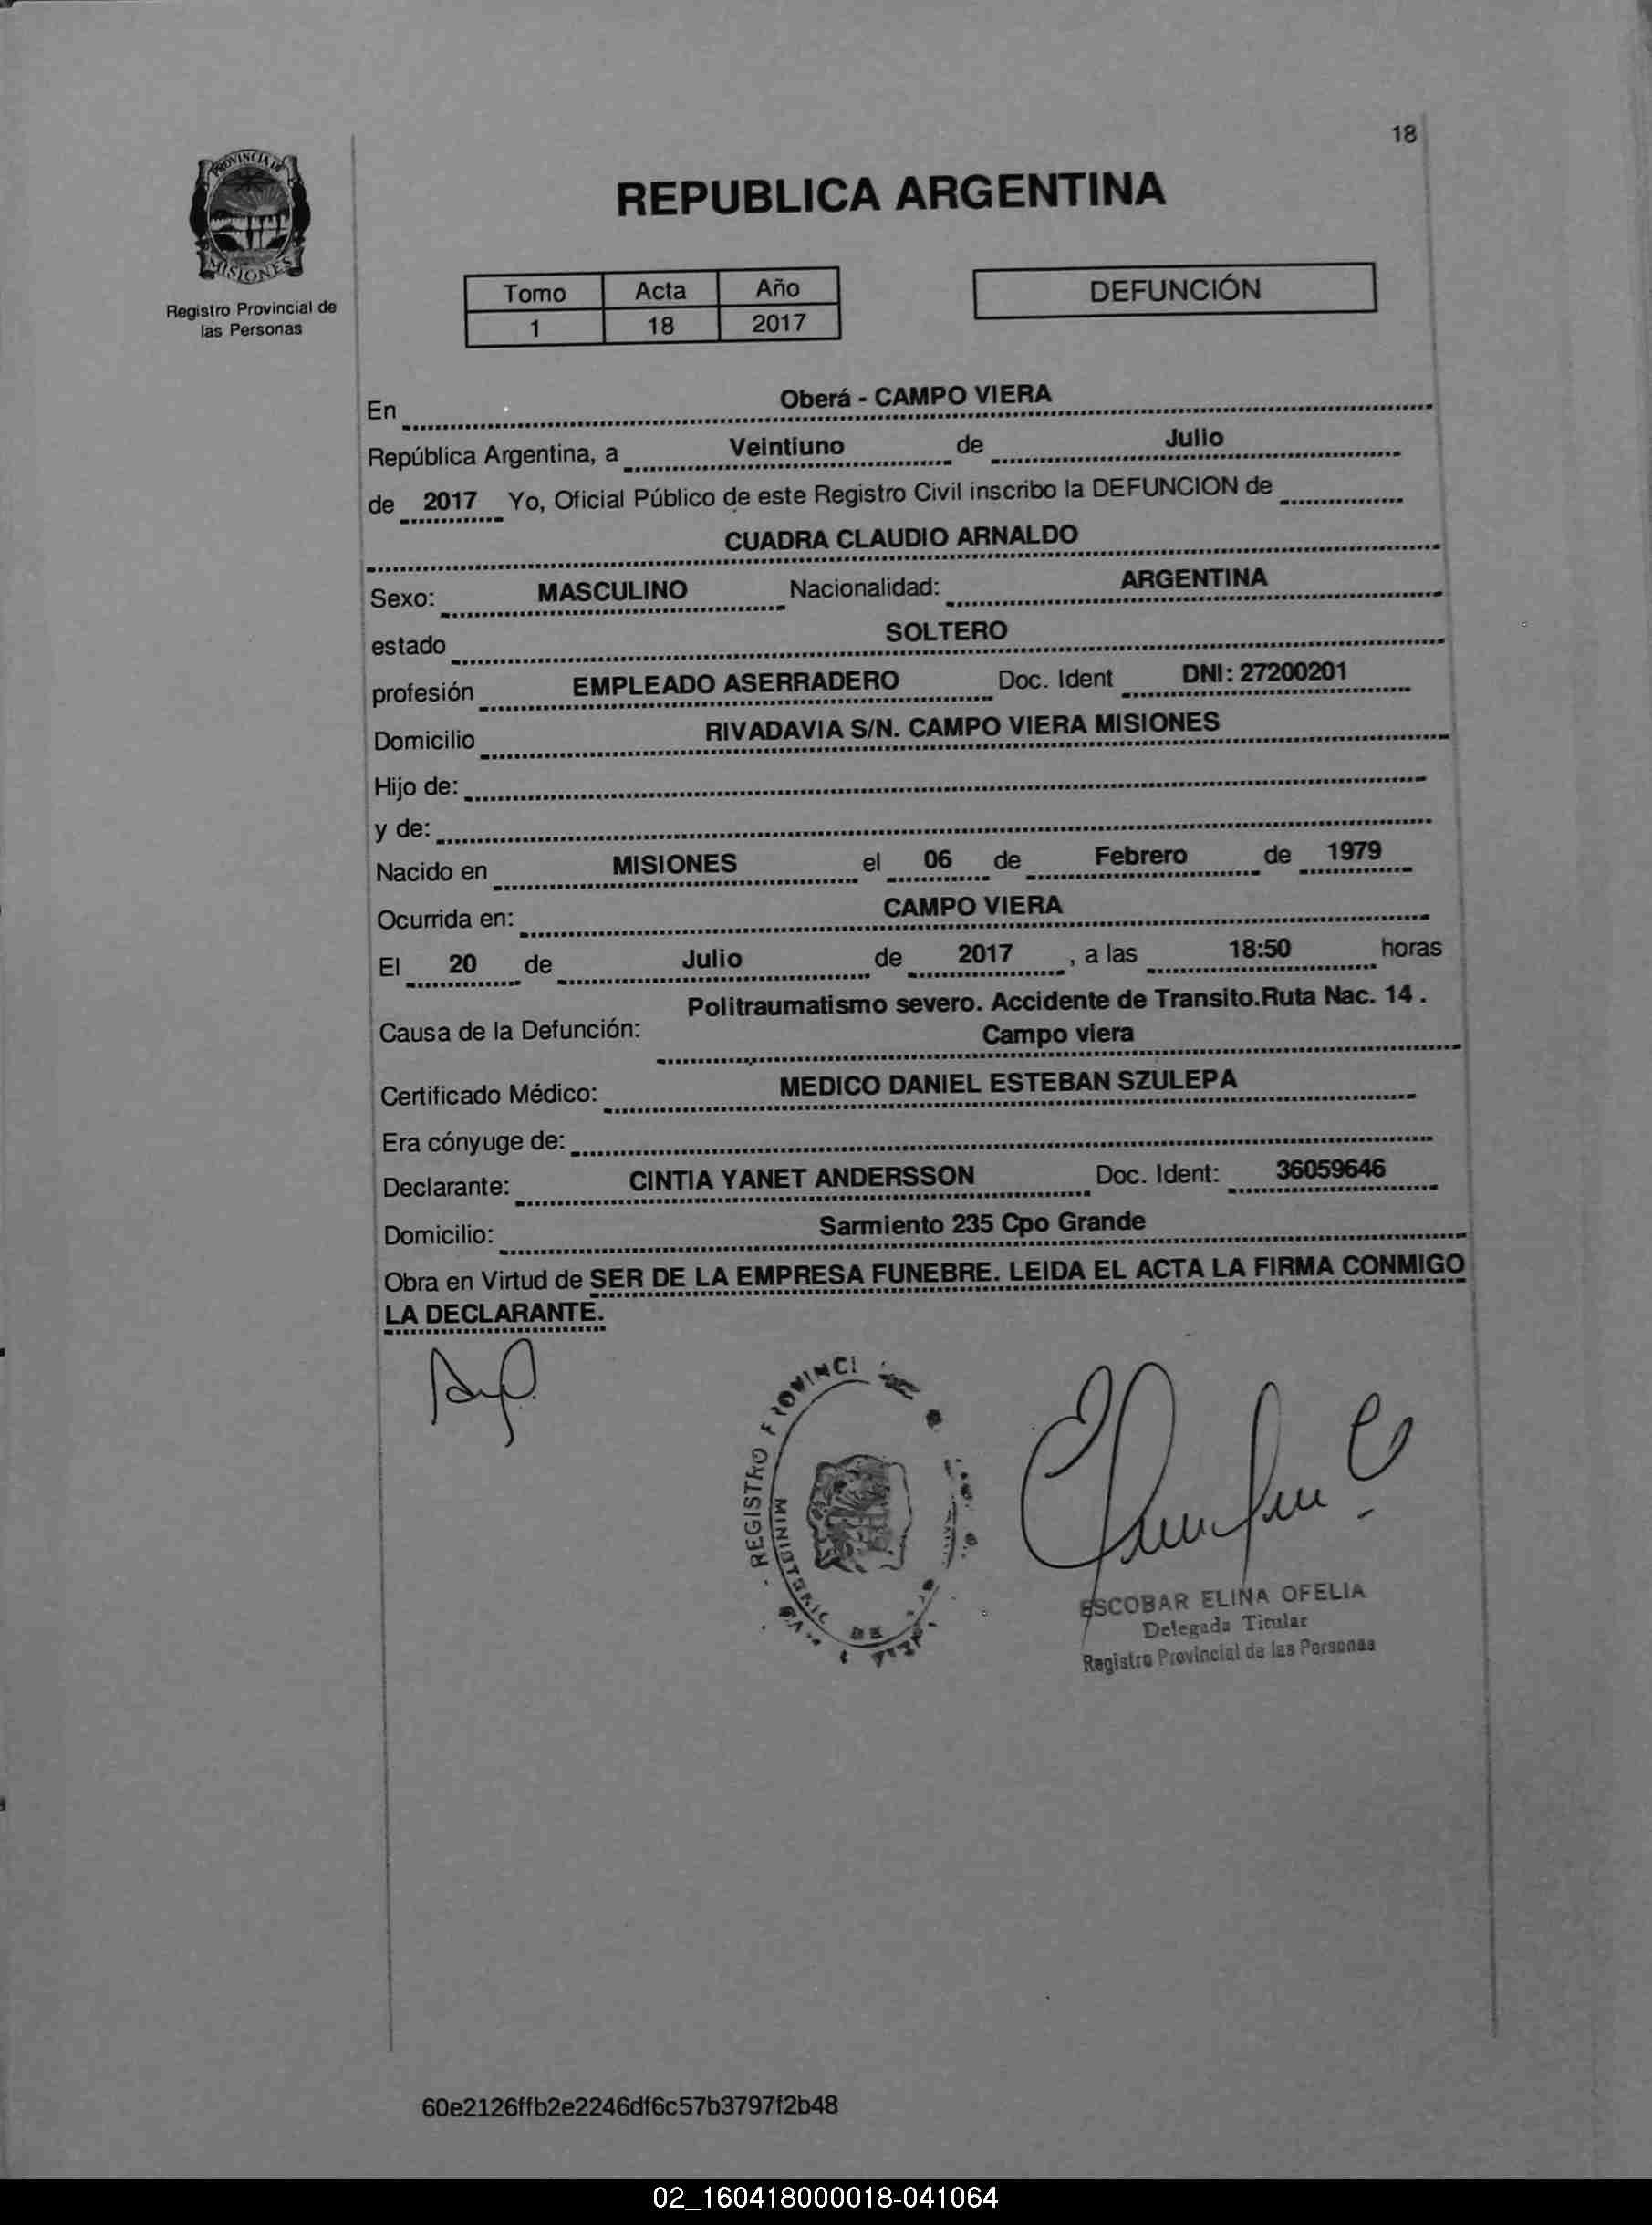 18
PROVINCIA DE
MISIONES
Registro Provincial de
las Personas
REPUBLICA ARGENTINA
Tomo Acta Año
1 18 2017
DEFUNCIÓN
En Oberá - CAMPO VIERA
República Argentina, a Veintiuno de Julio
de 2017 Yo, Oficial Público de este Registro Civil inscribo la DEFUNCION de
CUADRA CLAUDIO ARNALDO
Sexo: MASCULINO Nacionalidad: ARGENTINA
estado SOLTERO
profesión EMPLEADO ASERRADERO Doc. Ident DNI: 27200201
Domicilio RIVADAVIA S/N. CAMPO VIERA MISIONES
Hijo de:
y de:
Nacido en MISIONES el 06 de Febrero de 1979
Ocurrida en: CAMPO VIERA
El 20 de Julio de 2017 , a las 18:50 horas
Causa de la Defunción: Politraumatismo severo. Accidente de Transito.Ruta Nac. 14 .
Campo viera
Certificado Médico: MEDICO DANIEL ESTEBAN SZULEPA
Era cónyuge de:
Declarante: CINTIA YANET ANDERSSON Doc. Ident: 36059646
Domicilio: Sarmiento 235 Cpo Grande
Obra en Virtud de SER DE LA EMPRESA FUNEBRE. LEIDA EL ACTA LA FIRMA CONMIGO
LA DECLARANTE.
REGISTRO
ESCOBAR ELINA OFELIA
Delegada Titular
Registro Provincial de las Personas
60e2126ffb2e2246df6c57b3797f2b48
02_160418000018-041064